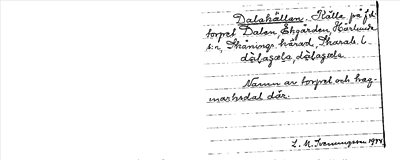 Dalahällan. Källe på f.d.
torpet Dalen, Ekgården, Härlunda
s:n, Skånings härad, Skarab. l.
Namn av torpet och hag-
marksdal där.
L. M. Svenungsson 1974